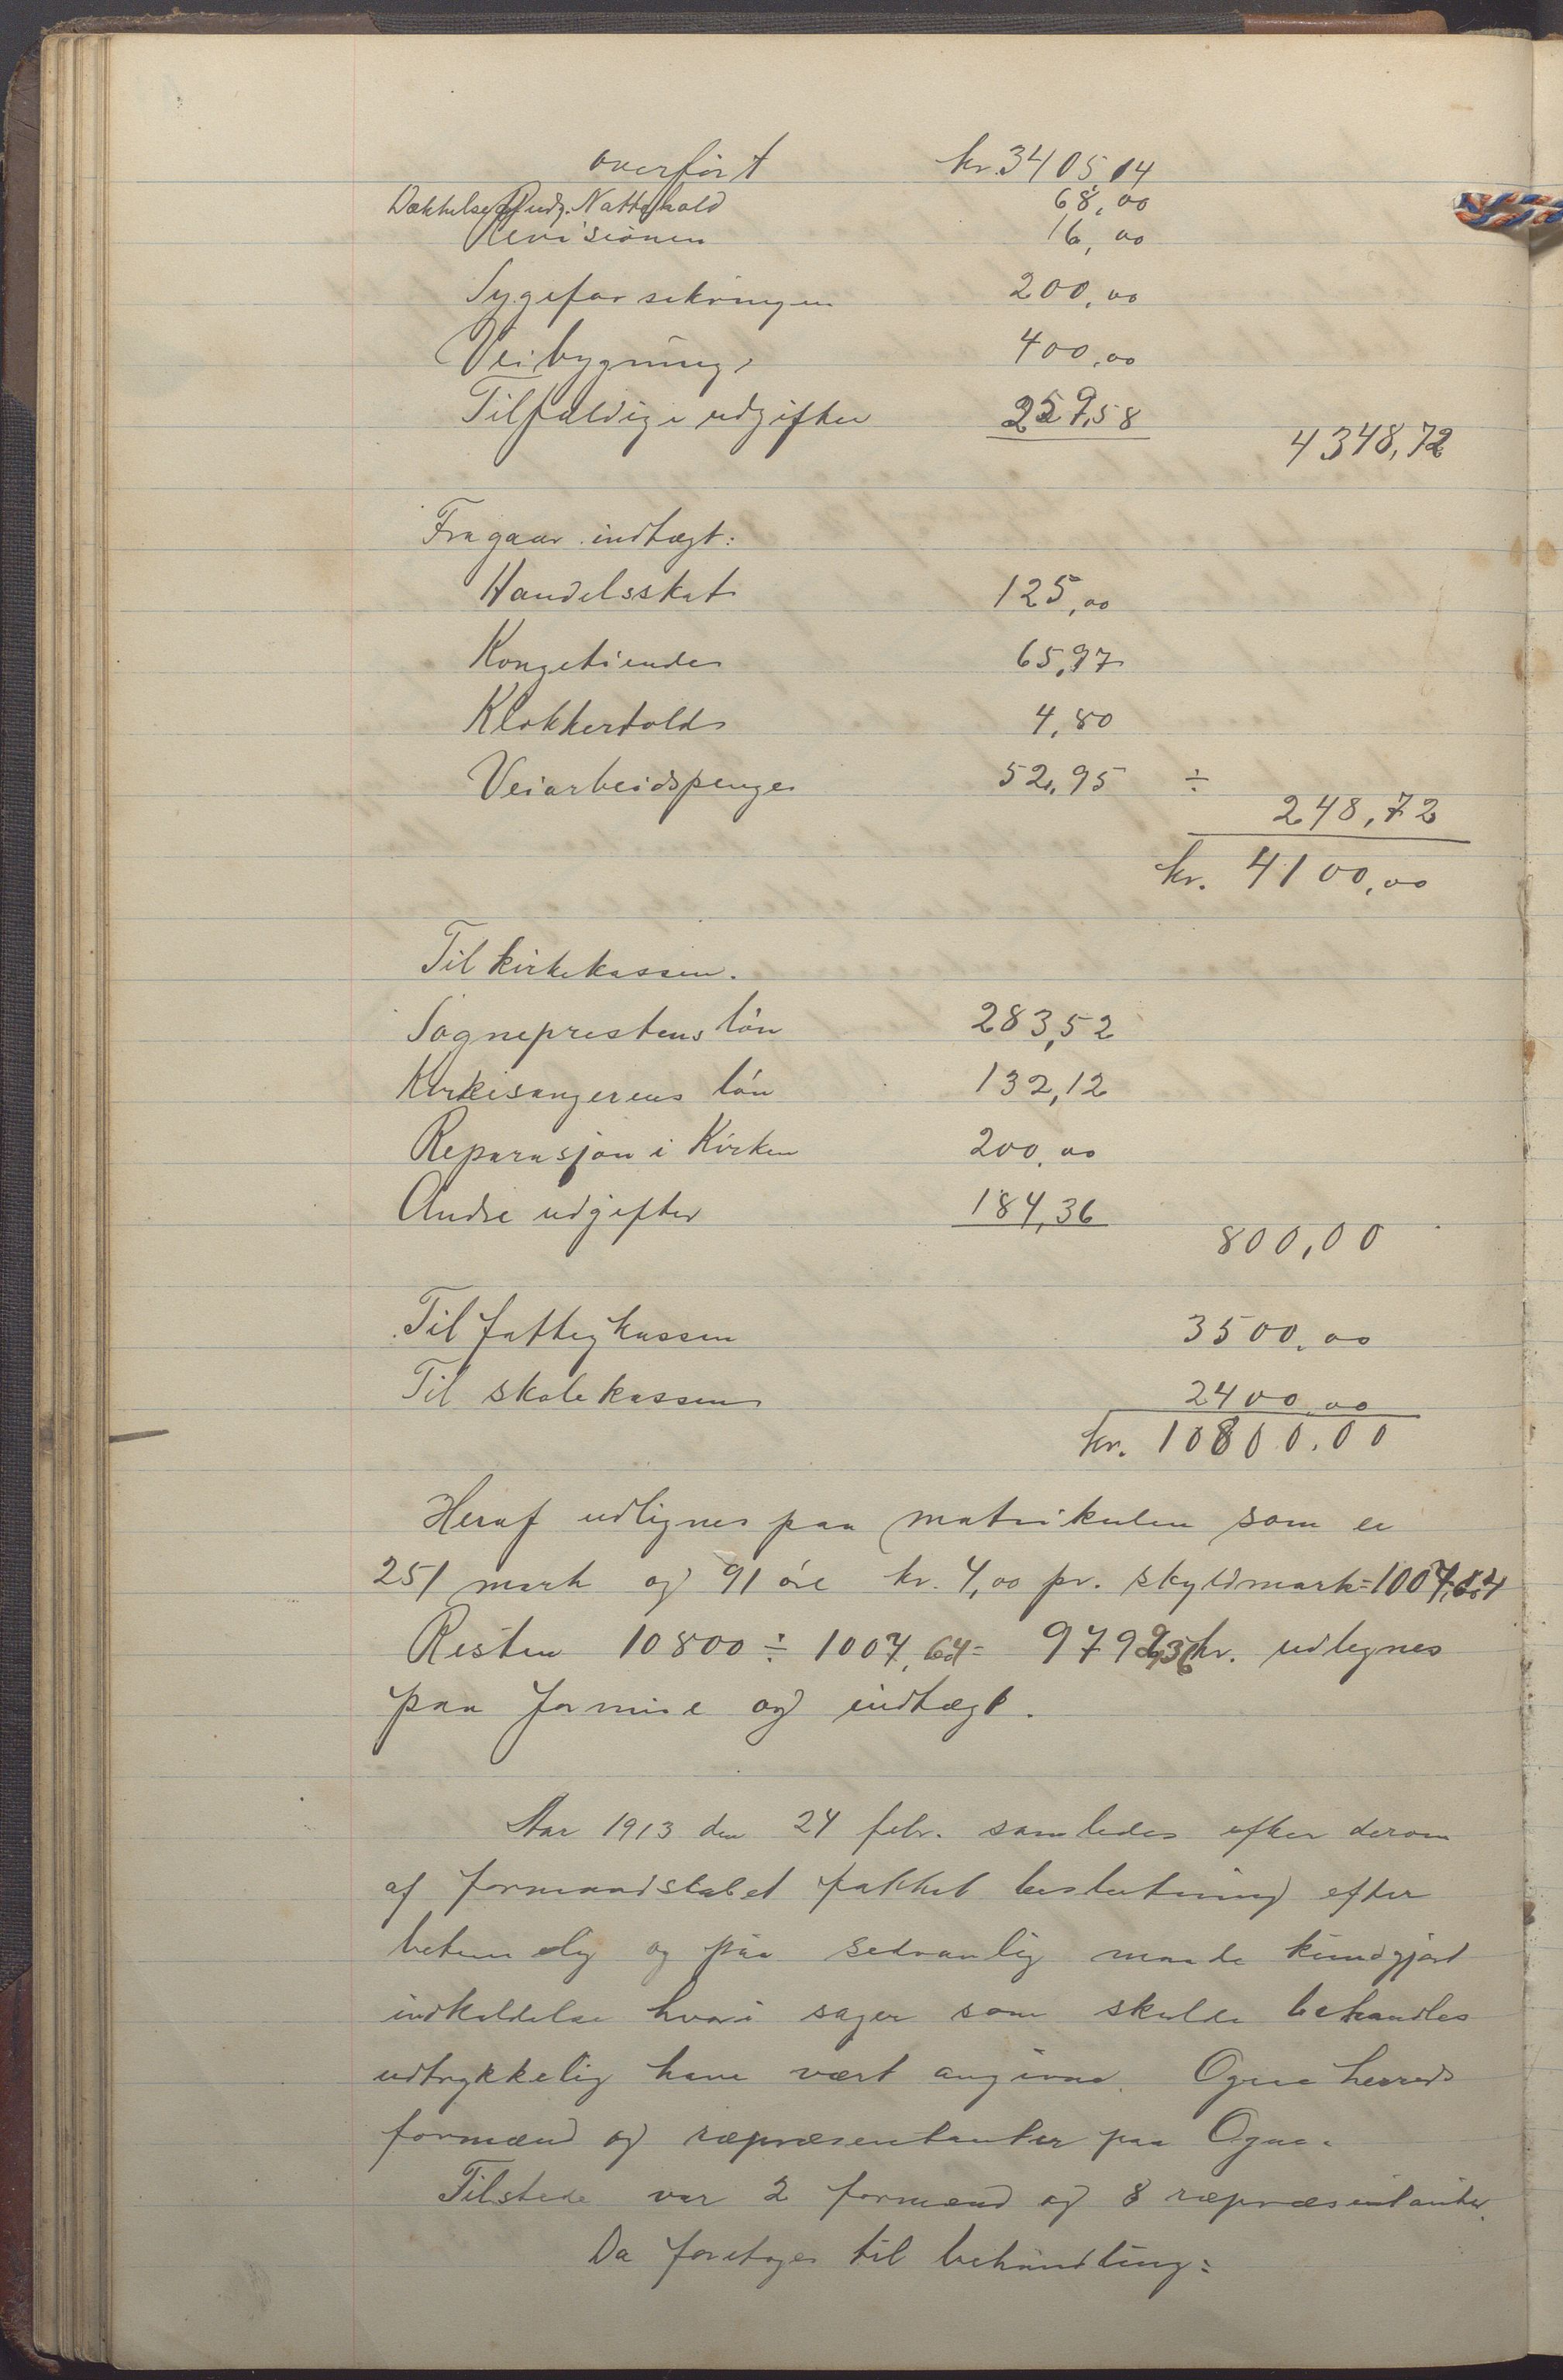 overført kr. 3405,14
Dækkelse af udg. Nattehold 68,00
Revisionen 16,00
Sygeforsekringen 200,00
Veibygning 400,00
Tilfældige udgifter 259,58
4348,72
Fragaar indtægt:
Handelsskat 125,00
Kongetiende 65,97
Klokkertold 4,80
Veiarbeidspenge 52,95 ÷
248,72
kr. 4100,00
Til kirkekassen.
Sogneprestens løn 283,52
Kirkesangerens løn 132,12
Reparasjon i Kirken 200,00
Andre udgifter 184,36
800,00
Til fattigkassen 3500,00
Til skolekassen 2400,00
kr. 10800,00
Heraf udlignes paa matrikulen som er
251 mark og 91 øre kr. 4,00 pr. skyldmark = 1007,64
Resten 10800 ÷ 1007,64 = 9792,36 kr. udlignes
paa formue og indtægt.
Aar 1913 den 24 febr. samledes efter derom
af formandskabet fattet beslutning efter
betimelig og paa sedvanlig maade kundgjort
indkaldelse hvori sager som skulde behandles
udtrykkelig have vært angivne. Ogna herreds
formænd og repræsentanter paa Ogna.
Tilstede var 2 formænd og 8 repræsentanter.
Da foretoges til behandling: